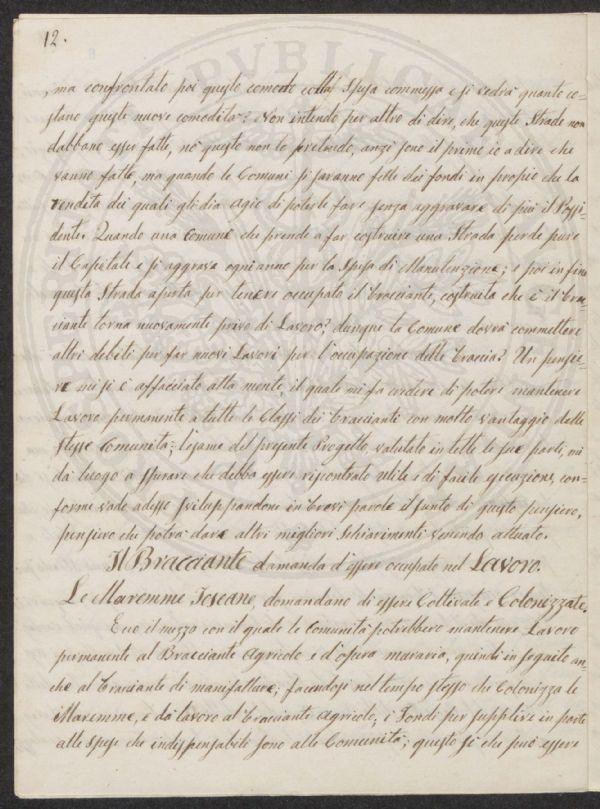 12.
, ma confrontato poi questo comodo colla Spesa commessa e si vedrà quanto co=
stano queste nuove comodità? Non intendo per altro di dire, che queste Strade non
debbano esser fatte, nò questo non lo pretendo, anzi sono il primo io a dire che
vanno fatte, ma quando le Comuni si saranno fatte dei fondi in proprio che la
rendita dei quali gli dia agio di poterle fare senza aggravare di più il Possi=
dente. Quando una Comune che prende a far costruire una Strada perde pure
il Capitale e si aggrava ogni anno per la Spesa di Manutenzione; e poi in fine
questa Strada aperta per tenere occupato il bracciante, costruita che è il brac=
ciante torna nuovamente privo di Lavoro? dunque la Comune dovrà commettere
altri debiti per far nuovi Lavori per l'occupazione delle braccia? Un pensie=
re mi si è affacciato alla mente, il quale mi fa credere di potere mantenere
Lavoro permanente a tutte le Classi dei braccianti con molto vantaggio delle
stesse Comunità; l'esame del presente Progetto, valutato in tutte le sue parti, mi
dà luogo a sperare che debba essere riscontrato utile e di facile esecuzione, con=
forme vado adesso sviluppandone in brevi parole il sunto di questo pensiero,
pensiero che potrà dare altri migliori schiarimenti venendo attuato.
Il Bracciante domanda d'essere occupato nel Lavoro.
Le Maremme Toscane, domandano di essere Coltivate e Colonizzate.
Ecco il mezzo con il quale le Comunità potrebbero mantenere Lavoro
permanente al Bracciante Agricolo e d'opera muraria, quindi in seguito an=
che al bracciante di manifatture; facendosi nel tempo stesso che Colonizza le
Maremme, e dà lavoro al bracciante Agricolo, i Fondi per supplire in parte
alle Spese che indispensabili sono alle Comunità; questo sì che può essere